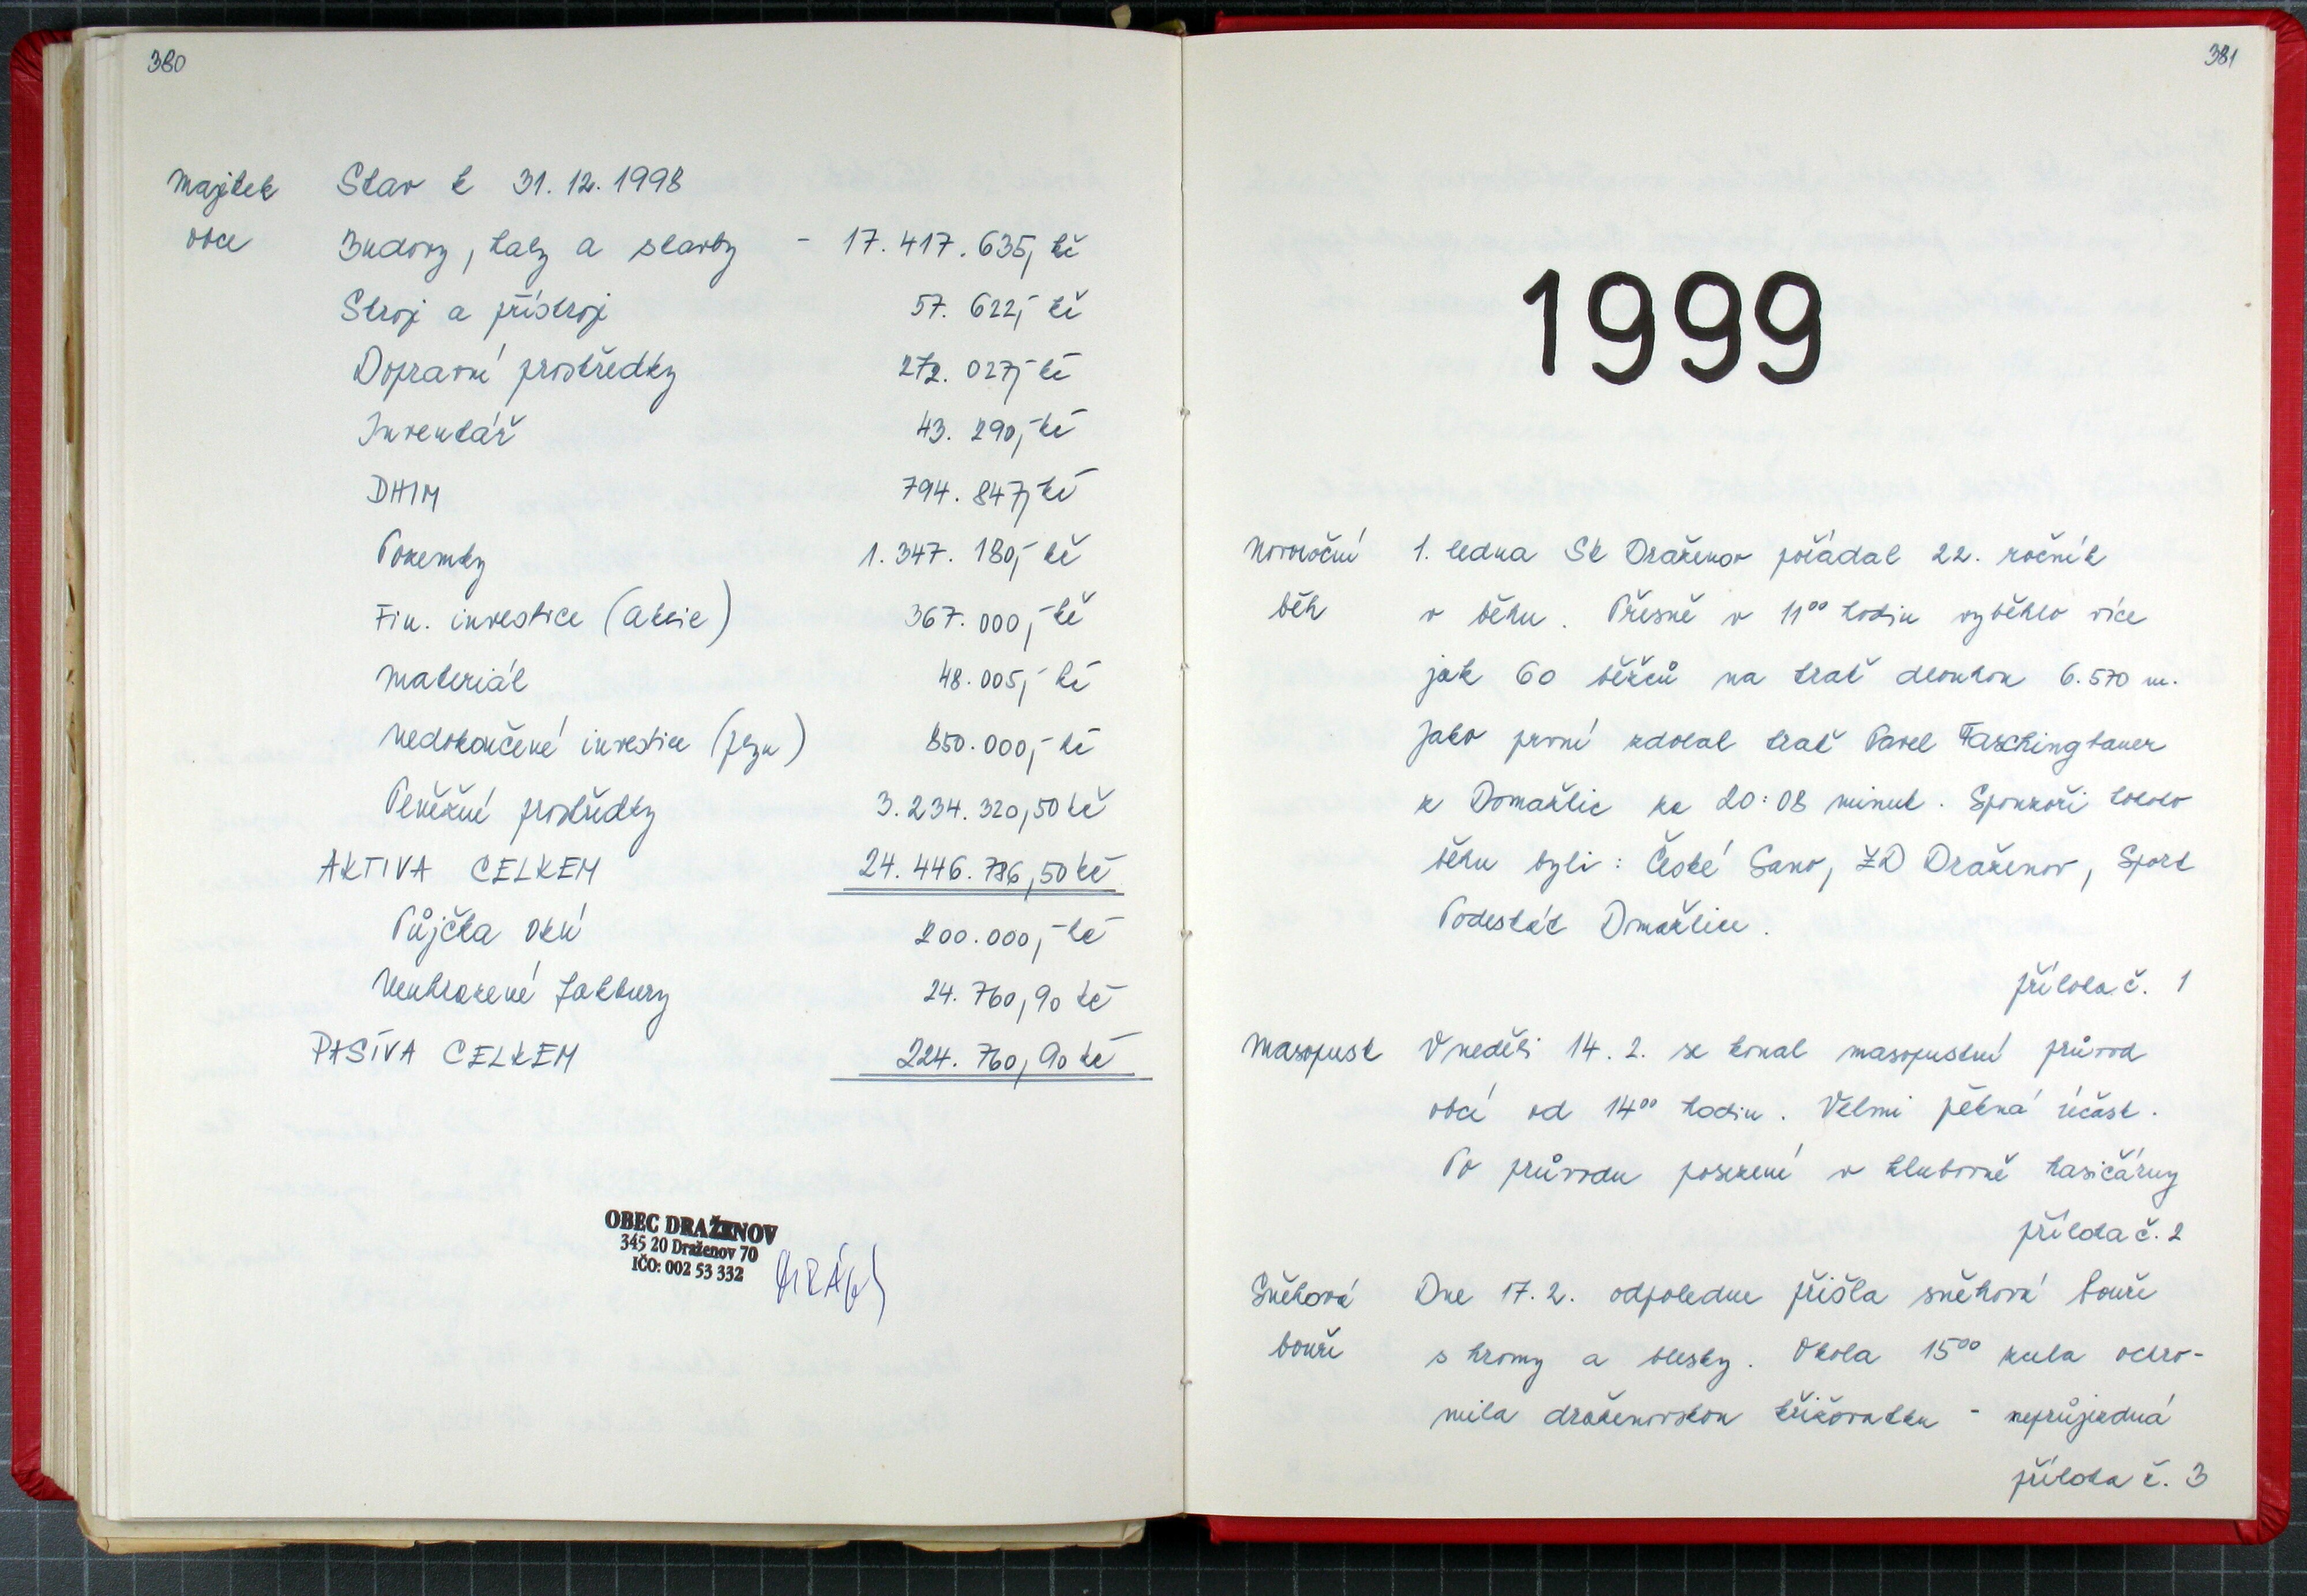 380
Majetek Stav k 31.12.1998
obce Budovy, haly a stavby - 17.417.635,- kč
Stroje a přístroje 57.622,- kč
Dopravní prostředky 272.027,- kč
Inventář 43.290,- kč
DHIM 794.847,- kč
Pozemky 1.347.180,- kč
Fin. investice (akcie) 367.000,- kč
Materiál 48.005,- kč
Nedokončené investice (plyn) 850.000,- kč
Peněžní prostředky 3.234.320,50 kč
AKTIVA CELKEM 24.446.786,50 kč
Půjčka OkÚ 200.000,- kč
Neuhrazené faktury 24.760,90 kč
PASÍVA CELKEM 224.760,90 kč
OBEC DRAŽENOV
345 20 Draženov 70
IČO: 002 53 332
381
1999
Novoroční 1. ledna SK Draženov pořádal 22. ročník
běh v běhu. Přesně v 11⁰⁰ hodin vyběhlo více
jak 60 běžců na trať dlouhou 6.570 m.
Jako první zdolal trať Pavel Faschingbauer
z Domažlic za 20:08 minut. Sponzoři tohoto
běhu byli: České Sano, ZD Draženov, Sport
Podestát Dmažlice.
příloha č. 1
Masopust V neděli 14.2. se konal masopustní průvod
obcí od 14⁰⁰ hodin. Velmi pěkná účast.
Po průvodu posezení v klubovně hasičárny
příloha č. 2
Sněhová Dne 17.2. odpoledne přišla sněhová bouře
bouře s hromy a blesky. Okola 15⁰⁰ zcela ochro-
mila draženovskou křižovatku - neprůjezdná
příloha č. 3